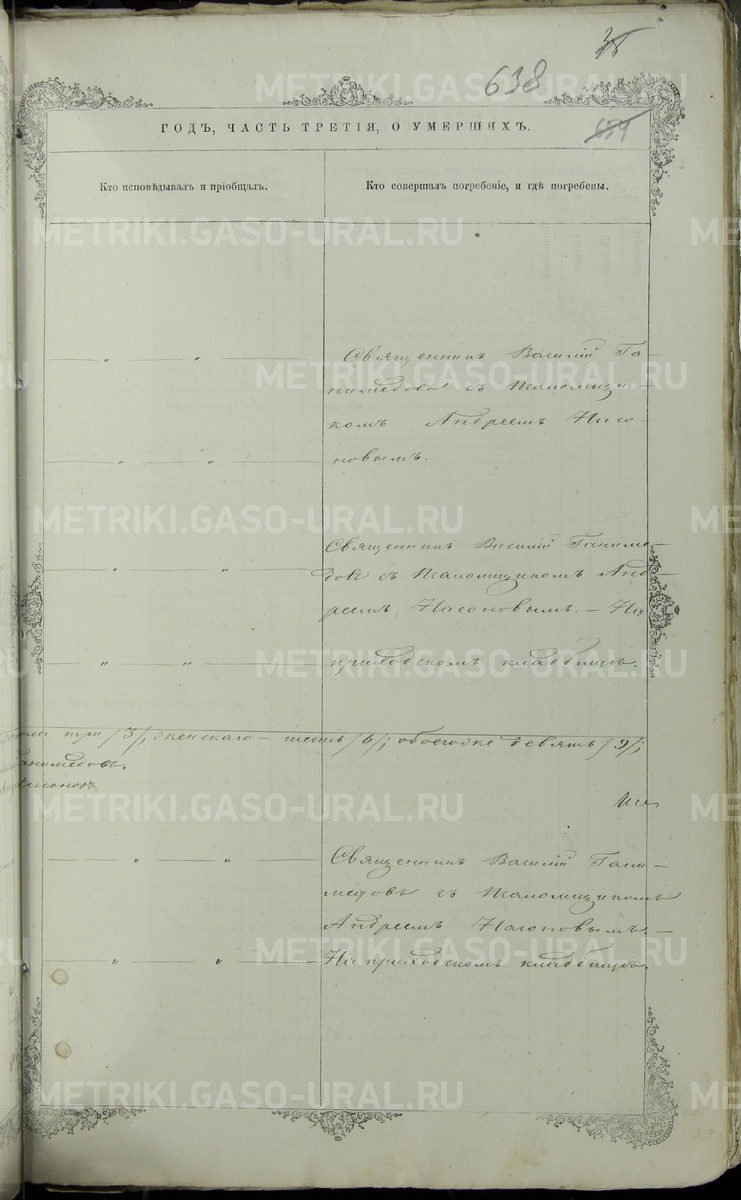 38
638
639
ГОДЪ, ЧАСТЬ ТРЕТІЯ, О УМЕРШИХЪ.
Кто исповѣдывалъ и пріобщалъ.
Кто совершалъ погребеніе, и гдѣ погребены.
— „ — „ — Священникъ Василій Га-
нимедовъ съ Псаломщи-
комъ Андреемъ Насо-
— „ — „ — новымъ.
Священникъ Василій Ганиме-
— „ — „ — довъ съ Псаломщикомъ Анд
реемъ Насоновымъ. — На
— „ — „ — приходскомъ кладбищѣ.
три /3/, женскаго — шесть /6/; обоегоже девять /9/;
Ганимедовъ.
Насоновъ
— „ — „ — Священникъ Василій Гани-
медовъ съ Псаломщикомъ
Андреемъ Насоновымъ. —
— „ — „ — На приходскомъ кладбищѣ.
METRIKI.GASO-URAL.RU